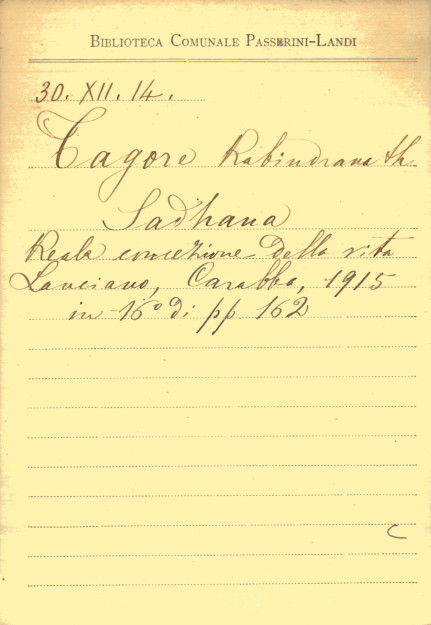 BIBLIOTECA COMUNALE PASSERINI-LANDI
30. XII. 14.
Tagore Rabindranath
Sadhana
Reale concezione della vita
Lanciano, Carabba, 1915
in 16° di pp 162
C